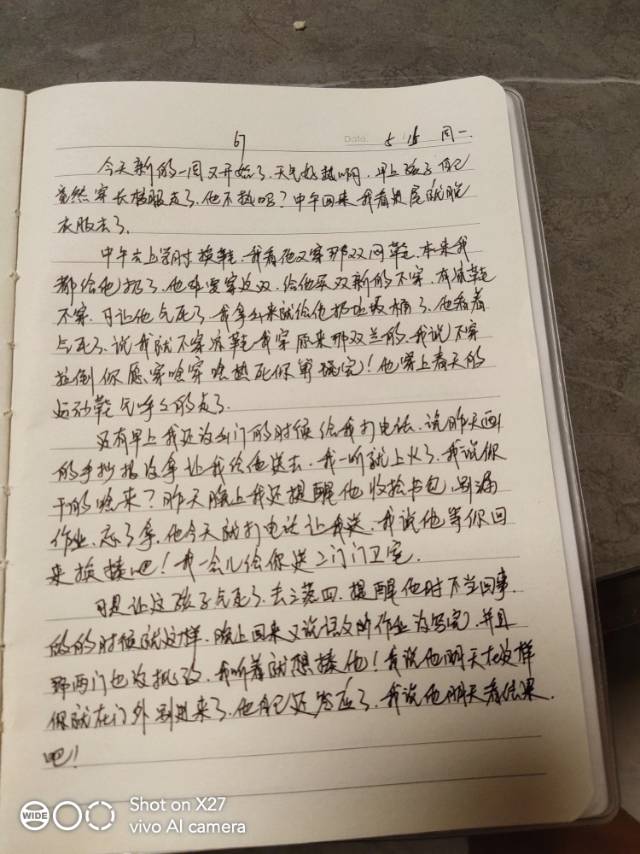 67 Date. 5 15 周一.
今天新的一周又开始了.天气好热啊.早上孩子自己
竟然穿长校服走了.他不热吗?中午回来我看见后就脱
衣服去了.
中午去上学时换鞋.我看他又穿那双网鞋.本来我
都给他扔了.他非要穿这双.给他买双新的不穿.有凉鞋
不穿.可让他气死了.我拿出来就给他扔垃圾桶了.他看着
气死了.说我就不穿凉鞋我穿原来那双兰的.我说不穿
拉倒你愿穿啥穿啥热死你算完!他穿上春天的
运动鞋气呼呼的走了.
还有早上我还没出门的时候给我打电话.说昨天画
的手抄报没拿让我给他送去.我一听就上火了.我说你
干的啥来?昨天晚上我还提醒他收拾书包.别漏
作业.忘了拿.他今天就打电话让我送.我说他等你回
来挨揍吧!我一会儿给你送二门门卫室.
可是让这孩子气死了.丢三落四.提醒他时不当回事.
的时候就这样.晚上回来又说语文的作业没写完.并且
那两门也没批改.我听着就想揍他!我说他明天在这样
你就在门外别进来了.他自己还答应了.我说他明天看结果
吧!
WIDE
Shot on X27
vivo AI camera